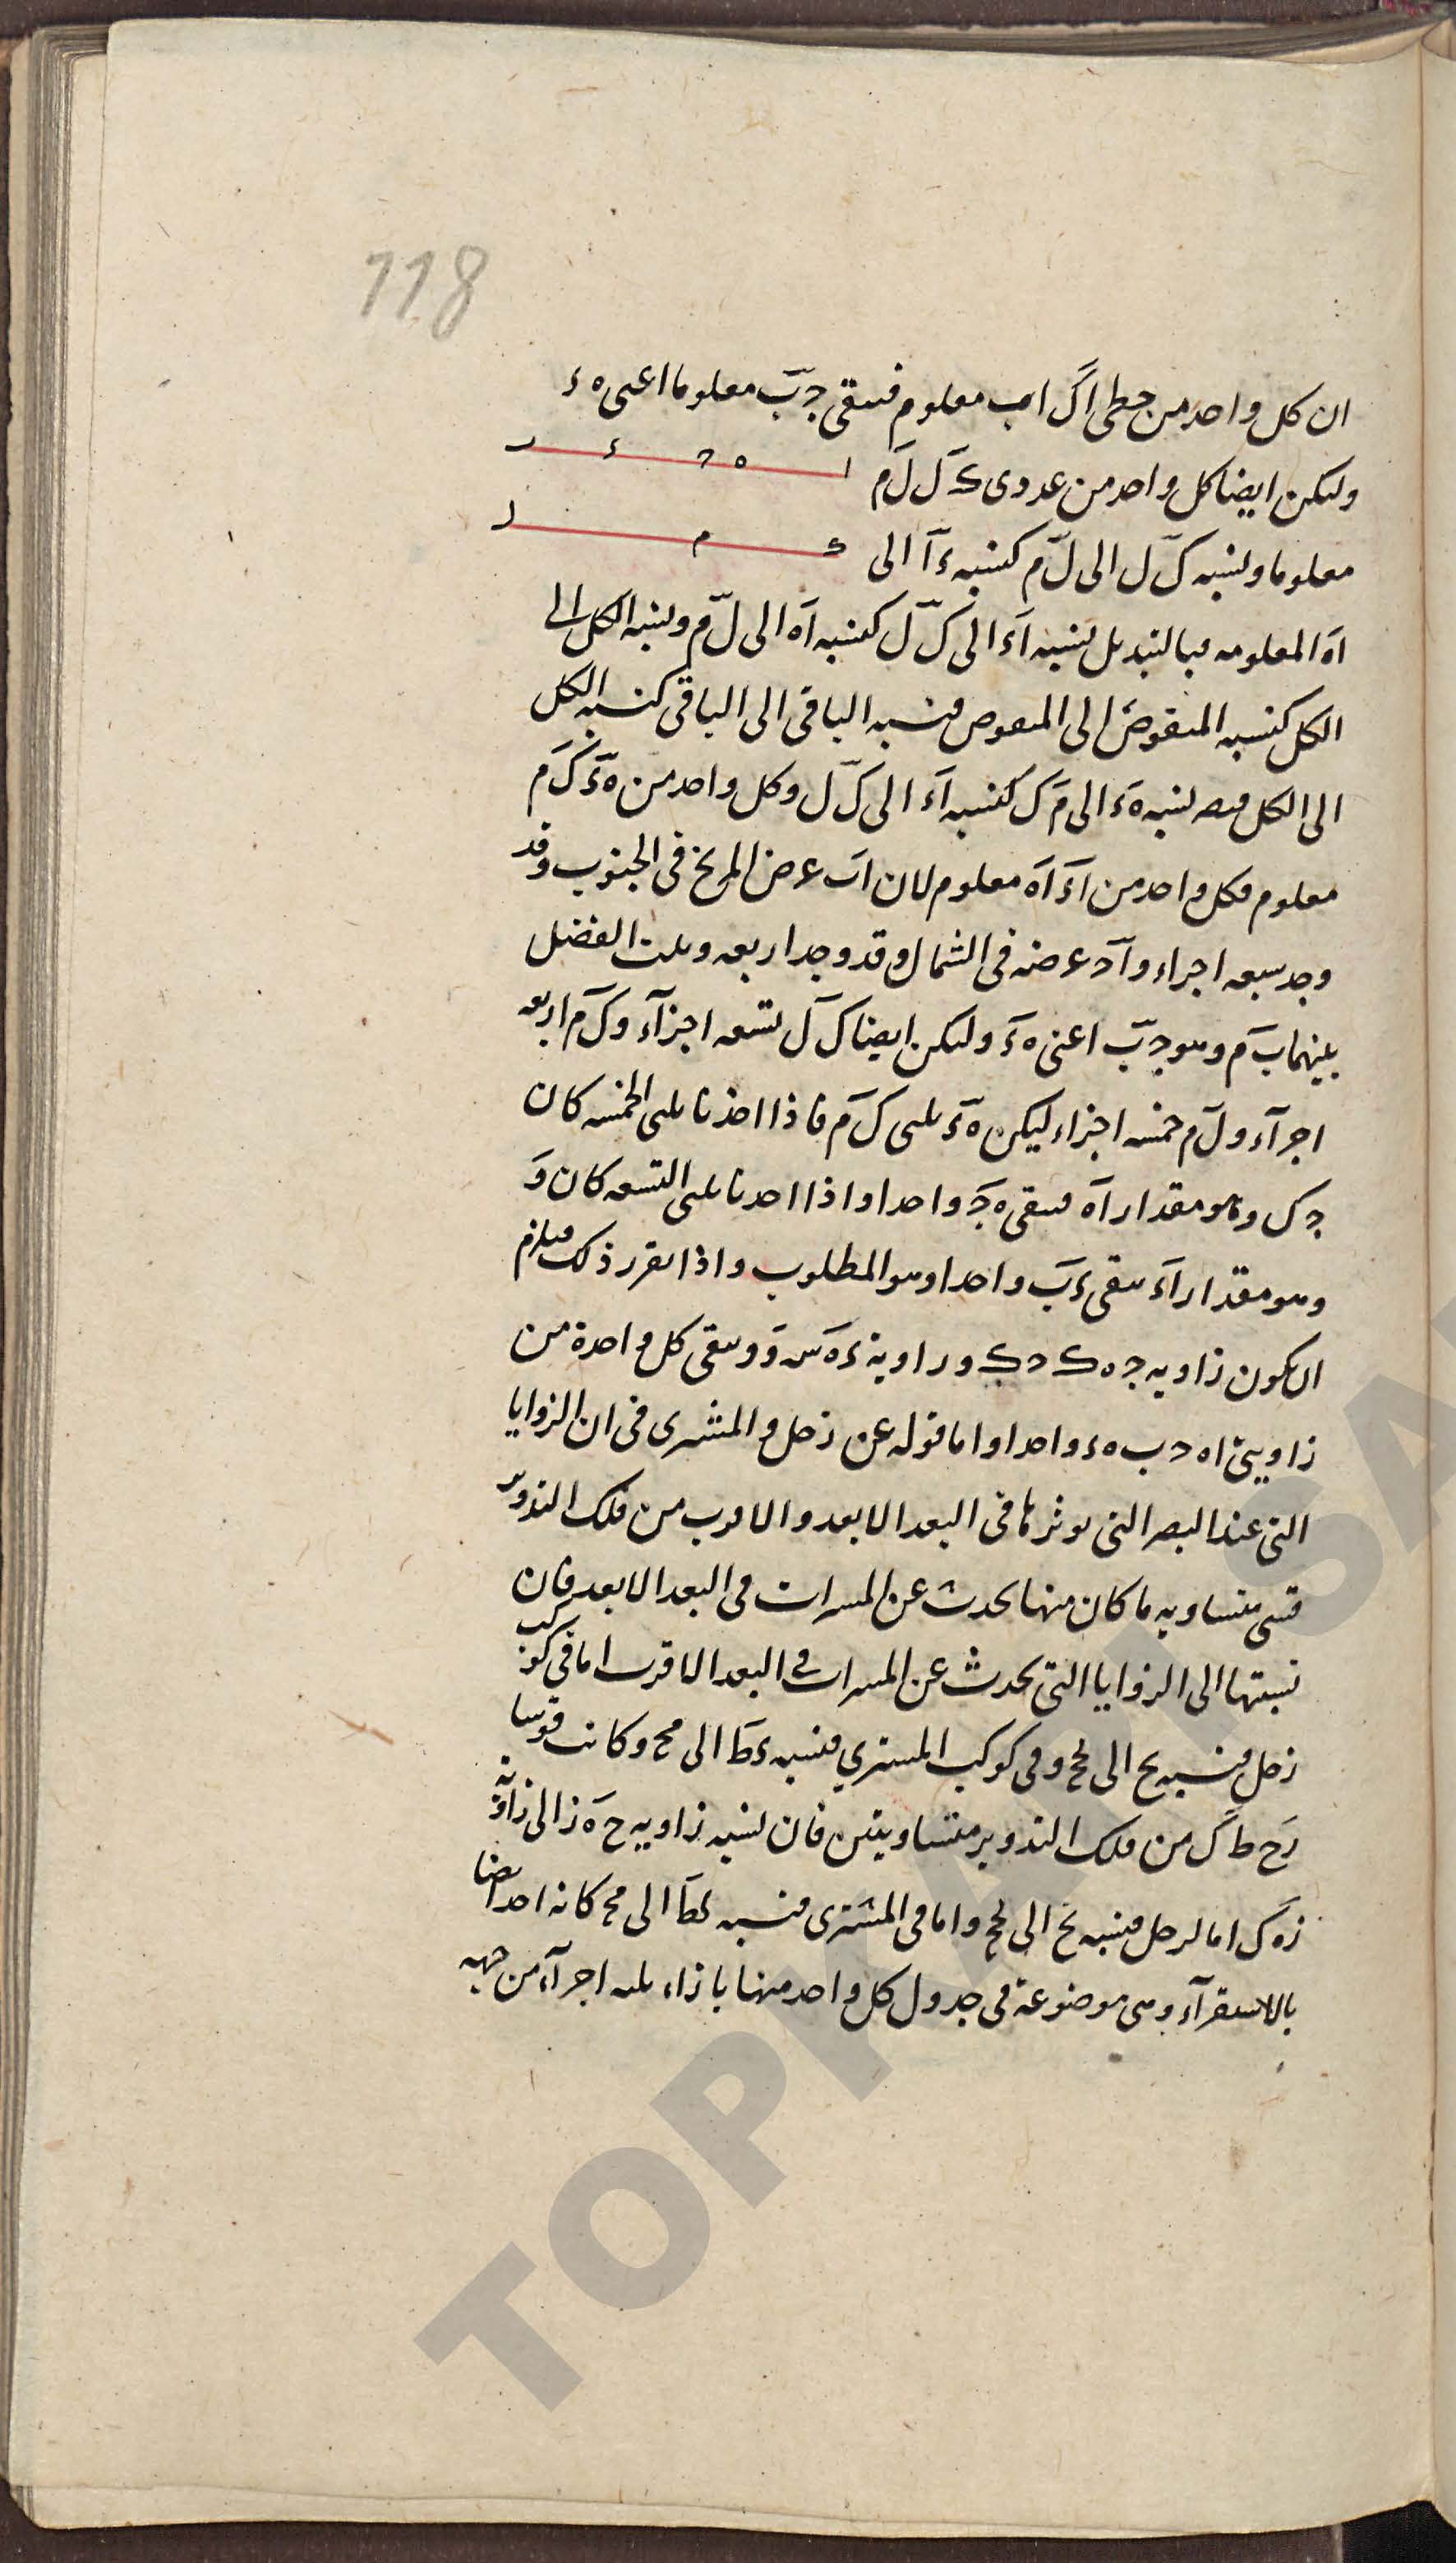 118
ان كل واحد من خطى اك اب معلوم فيبقى جب معلوما اعنى ه ء
وليكن ايضا كل واحد من عددى ك ل ل م
ا ه ح ء ر
معلوما ونسبه ك ل الى ل م كنسبه ء ا الى
ك م ل
اه المعلومه فبالتبديل نسبه اء الى ك ل كنسبه اه الى ل م ونسبه الكل الى
الكل كنسبه المنقوص الى المنقوص فنسبه الباقى الى الباقى كنسبه الكل
الى الكل نسبه ه ء الى م ك كنسبه اء الى ك ل وكل واحد من ه ء ك م
معلوم فكل واحد من اء اه معلوم لان اب عرض المريخ فى الجنوب وقد
وجد سبعه اجزاء واح عرضه فى الشمال وقد وجد اربعه وثلث الفضل
بينهما ب م وهو جب اعنى ه ء وليكن ايضا ك ل تسعه اجزآء وك م اربعه
اجزآء ول م خمسه اجزاء ليكن ه ء ثلثى ك م فاذا اخذنا ثلثى الخمسه كان
ج ك وهو مقدار اه فيبقى ه ج واحدا واذا اخذنا ثلثى التسعه كان و
وهو مقدار اء يبقى ء ب واحدا وهو المطلوب واذا تقرر ذلك فيلزم
ان يكون زاويه ج ه ك وزاوية ء ه س و ويبقى كل واحدة من
زاويتى اه ح ب ه ء واحدا واما قوله عن زحل والمشترى فى ان الزوايا
التى عند البصر التى يوثرها فى البعد الابعد والاقرب من فلك التدوير
قسى متساويه ما كان منها يحدث عن المسيرات فى البعد الابعد فان
نسبتها الى الزوايا التى يحدث عن المسيرات فى البعد الاقرب اما فى كوكب
زحل فنسبه يح الى لح وفى كوكب المشترى فنسبه كط الى مح وكانت قوسا
زح ط ك من فلك التدوير متساويتين فان نسبه زاويه ح ه ز الى زاوية
زه ك اما لزحل فنسبه يح الى لح واما فى المشترى فنسبه كط الى مح كانه احد ايضا
بالاستقرآء وهى موضوعة فى جدول كل واحد منها بازاء ثلثه اجزآء من جهه
TOPKAPI SA